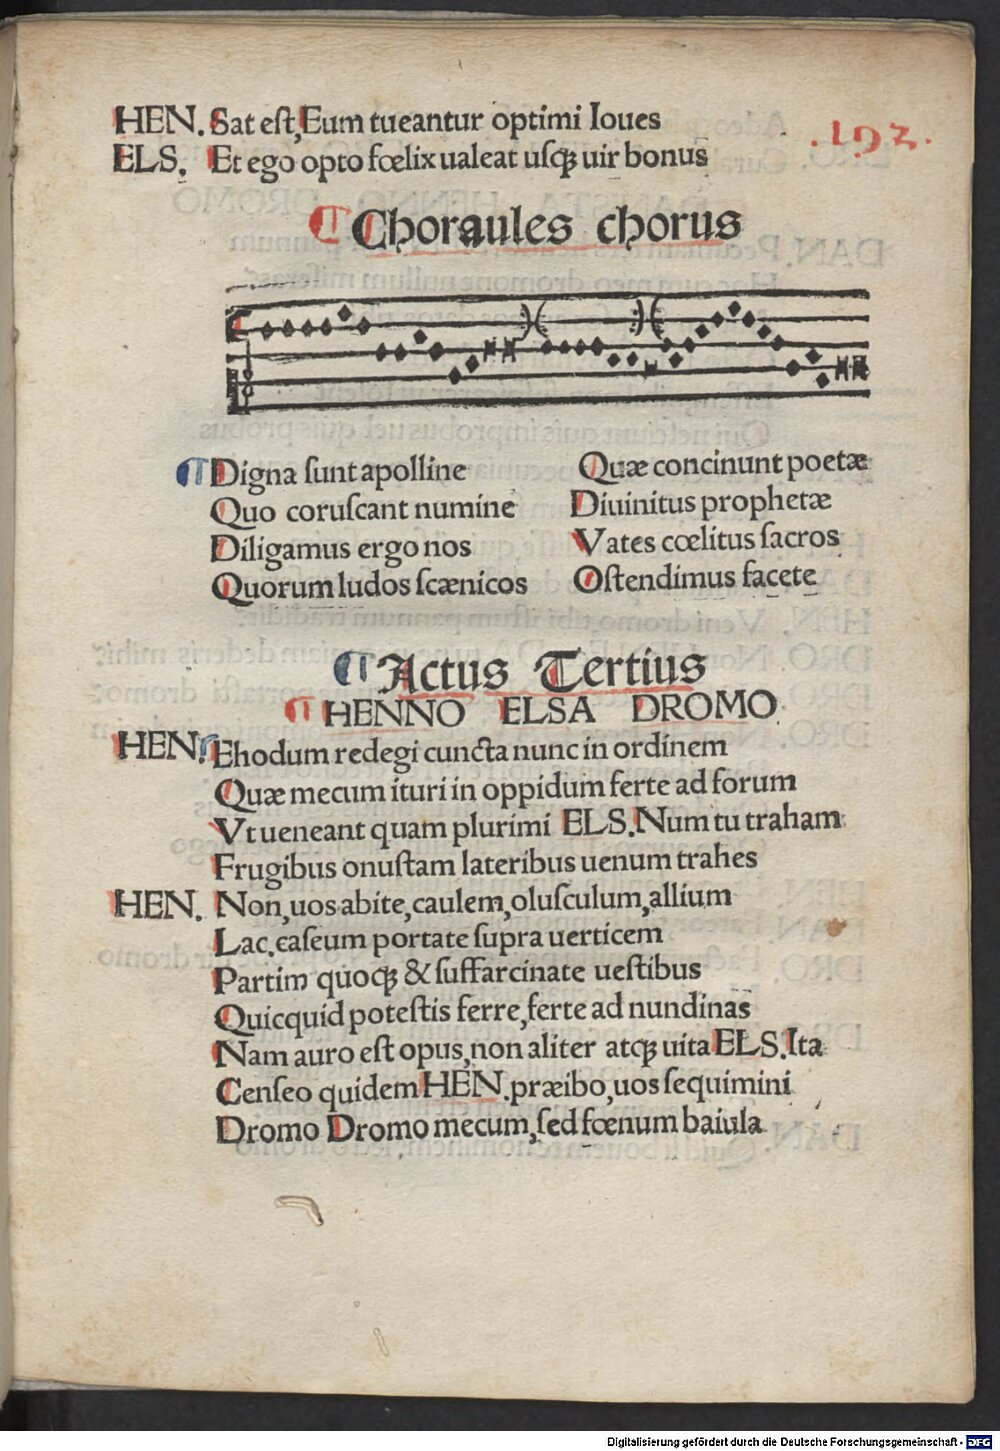 HEN. Sat eſt, Eum tueantur optimi Ioues
.193.
ELS. Et ego opto fœlix ualeat uſqꝫ uir bonus
¶ Choraules chorus
¶ Digna ſunt apolline
Quo coruſcant numine
Diligamus ergo nos
Quorum ludos ſcænicos
Quæ concinunt poetæ
Diuinitus prophetæ
Vates cœlitus ſacros
Oſtendimus facete
¶ Actus Tertius
¶ HENNO ELSA DROMO
HEN. Ehodum redegi cuncta nunc in ordinem
Quæ mecum ituri in oppidum ferte ad forum
Vt ueneant quam plurimi ELS. Num tu traham
Frugibus onuſtam lateribus uenum trahes
HEN. Non, uos abite, caulem, oluſculum, allium
Lac. caſeum portate ſupra uerticem
Partim quoqꝫ & ſuffarcinate ueſtibus
Quicquid poteſtis ferre, ferte ad nundinas
Nam auro eſt opus, non aliter atqꝫ uita ELS. Ita
Cenſeo quidem HEN. præibo, uos ſequimini
Dromo Dromo mecum, ſed fœnum baiula
Digitalisierung gefördert durch die Deutsche Forschungsgemeinschaft - DFG